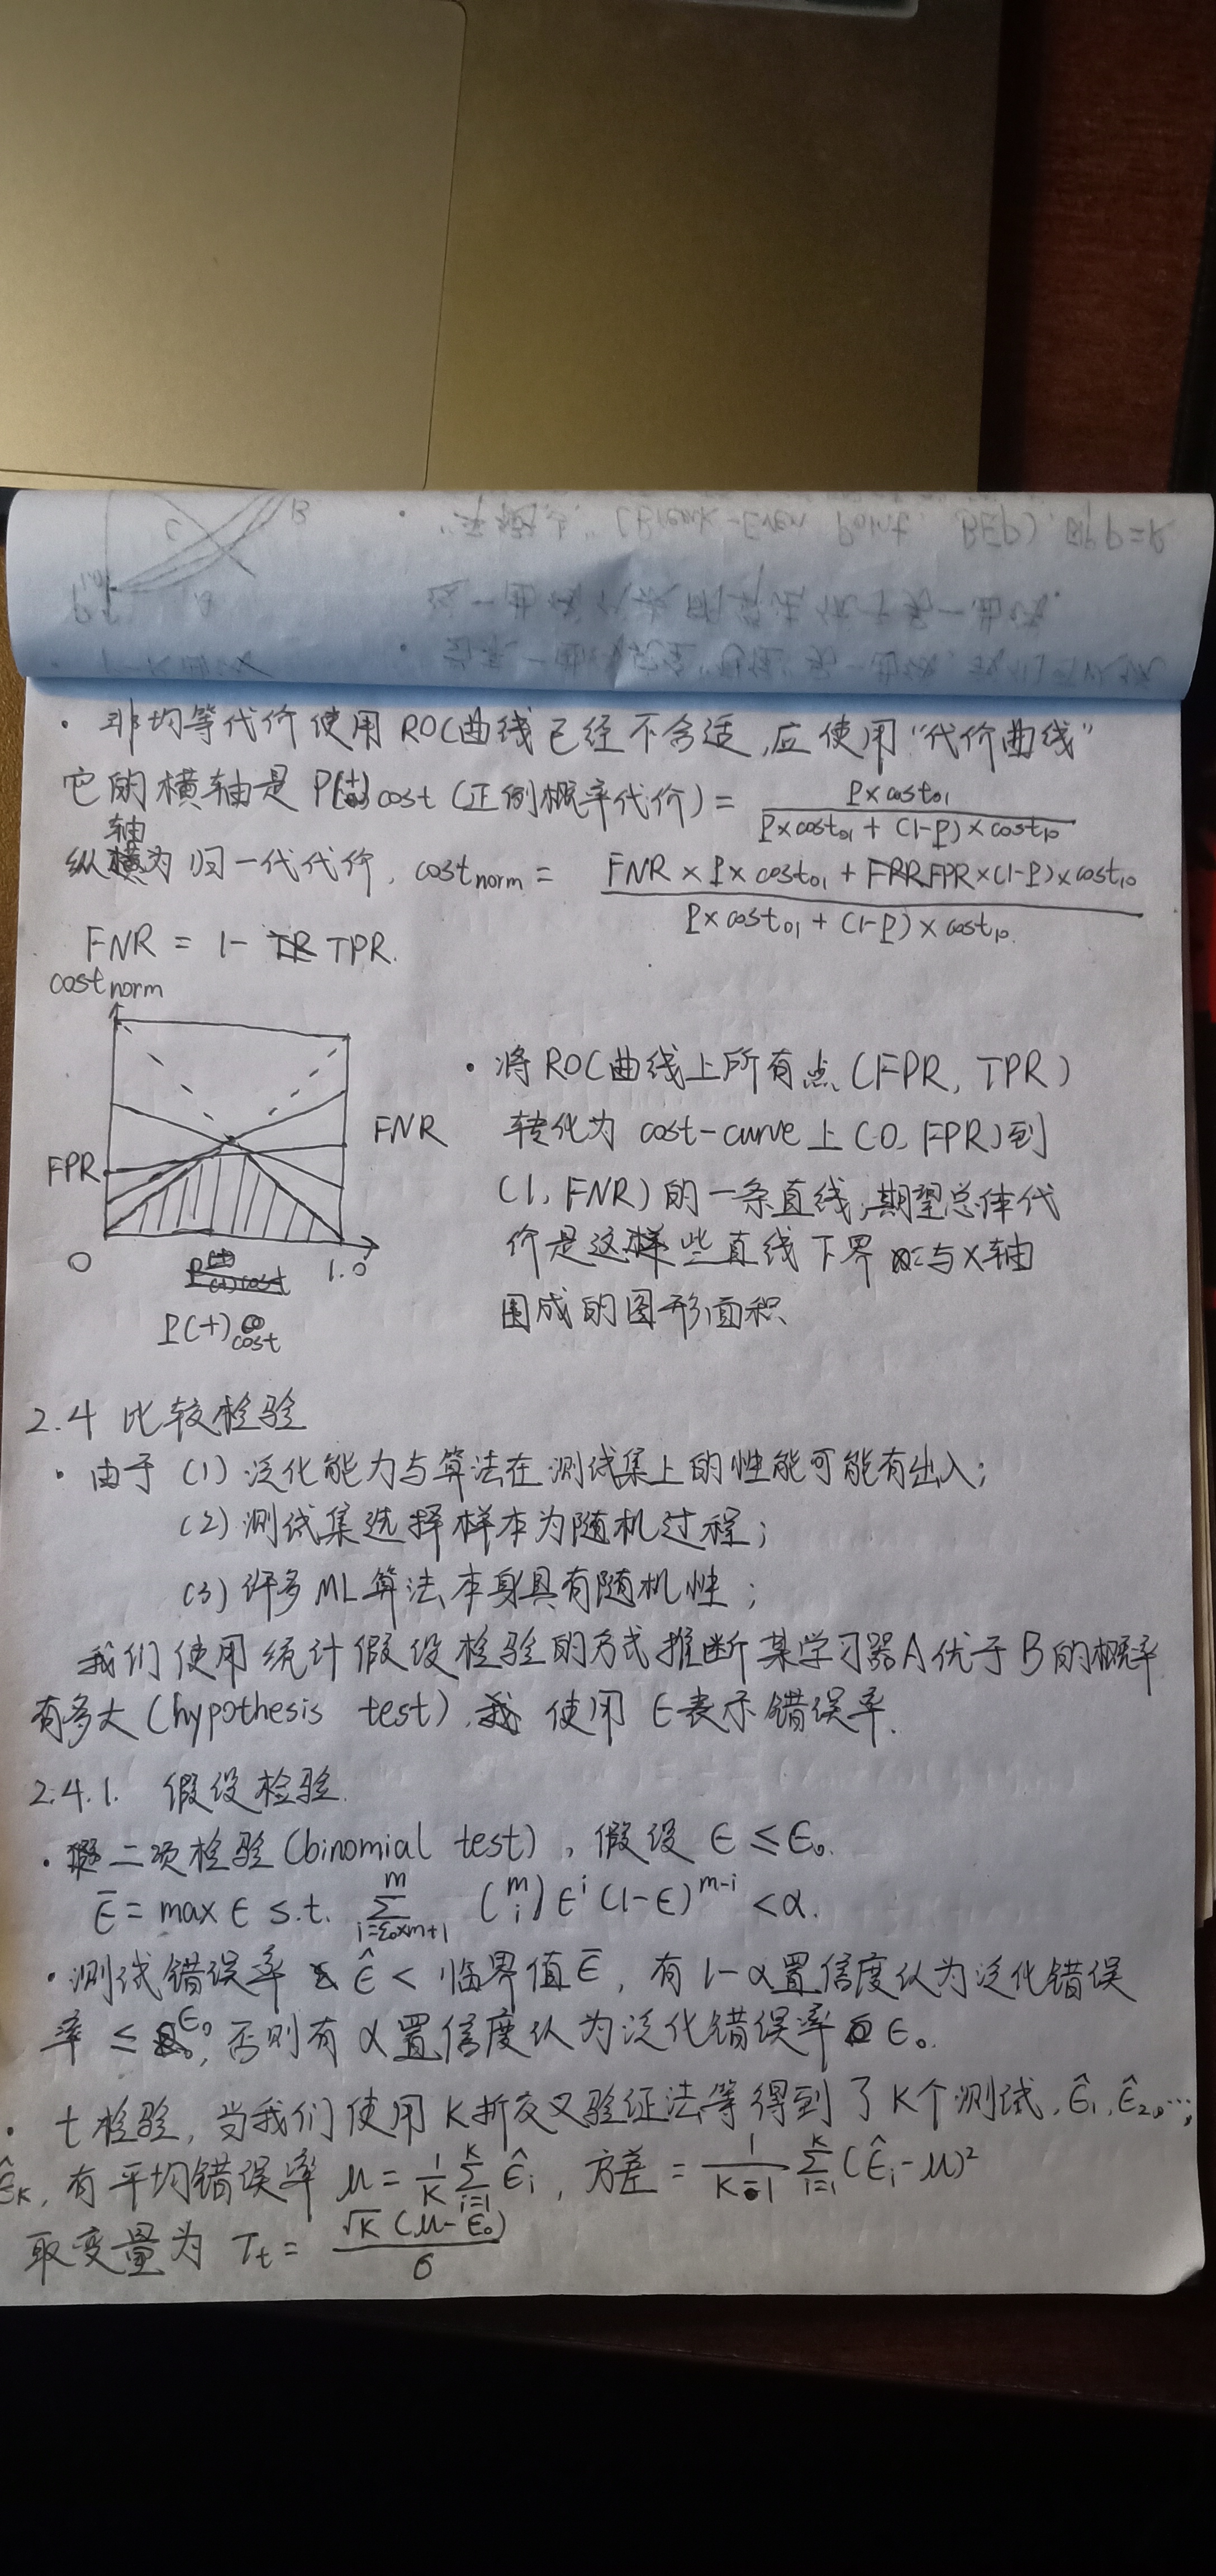 · 非均等代价使用ROC曲线已经不合适,应使用“代价曲线”
它的横轴是 P(+)cost (正例概率代价) = P×cost₀₁ / (P×cost₀₁ + (1-P)×cost₁₀)
纵轴为归一代代价, cost_norm = (FNR×P×cost₀₁ + FPR×(1-P)×cost₁₀) / (P×cost₀₁ + (1-P)×cost₁₀)
FNR = 1- TPR.
cost_norm
FPR
FNR
0
1.0
P(+)cost
· 将ROC曲线上所有点(FPR, TPR)
转化为 cost-curve上(0, FPR)到
(1, FNR)的一条直线,期望总体代
价是这些直线下界与X轴
围成的图形面积
2.4 比较检验
· 由于 (1) 泛化能力与算法在测试集上的性能可能有出入;
(2) 测试集选择样本为随机过程;
(3) 许多ML算法本身具有随机性;
我们使用统计假设检验的方式推断某学习器A优于B的概率
有多大(hypothesis test), 使用 ϵ表示错误率.
2.4.1. 假设检验.
· 二项检验(binomial test), 假设 ϵ ≤ ϵ₀.
ϵ̄ = max ϵ s.t. Σ_{i=ϵ₀×m+1}^{m} (m i) ϵ^i (1-ϵ)^{m-i} < α.
· 测试错误率 ϵ̂ < 临界值ϵ̄, 有1-α置信度认为泛化错误
率 ≤ ϵ₀, 否则有α置信度认为泛化错误率 ϵ₀.
· t检验, 当我们使用K折交叉验证法等得到了K个测试, ϵ̂₁, ϵ̂₂, ...,
ϵ̂_K, 有平均错误率 μ = 1/K Σ_{i=1}^{K} ϵ̂_i, 方差 = 1/(K-1) Σ_{i=1}^{K} (ϵ̂_i - μ)²
取变量为 T_t = √K (μ-ϵ₀) / σ